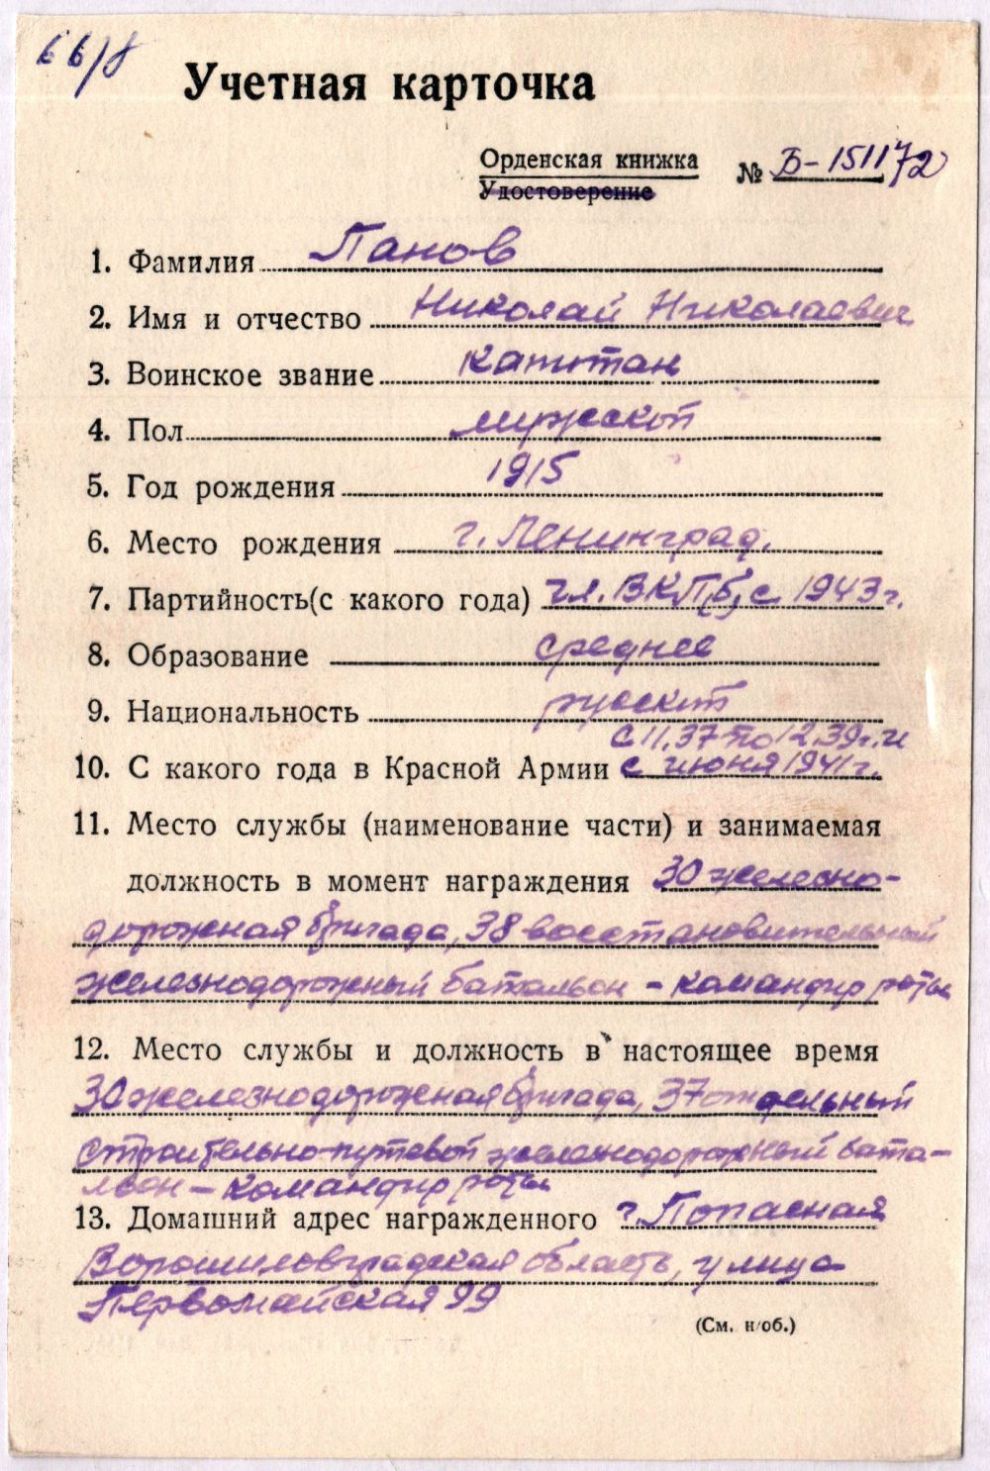 66/8
Учетная карточка
Орденская книжка № Б-151172
Удостоверение
1. Фамилия Панов
2. Имя и отчество Николай Николаевич
3. Воинское звание капитан
4. Пол мужской
5. Год рождения 1915
6. Место рождения г. Ленинград.
7. Партийность(с какого года) чл. ВКП(б) с 1943 г.
8. Образование среднее
9. Национальность русский
с 11.37 по 12.39 г. и
10. С какого года в Красной Армии с июня 1941 г.
11. Место службы (наименование части) и занимаемая
должность в момент награждения 30 железно-
дорожная бригада, 38 восстановительный
железнодорожный батальон - командир роты
12. Место службы и должность в настоящее время
30 железнодорожная бригада, 37 отдельный
строительно-путевой железнодорожный бата-
льон - командир роты
13. Домашний адрес награжденного г. Попасная
Ворошиловградская область, улица
Первомайская 99
(См. н/об.)